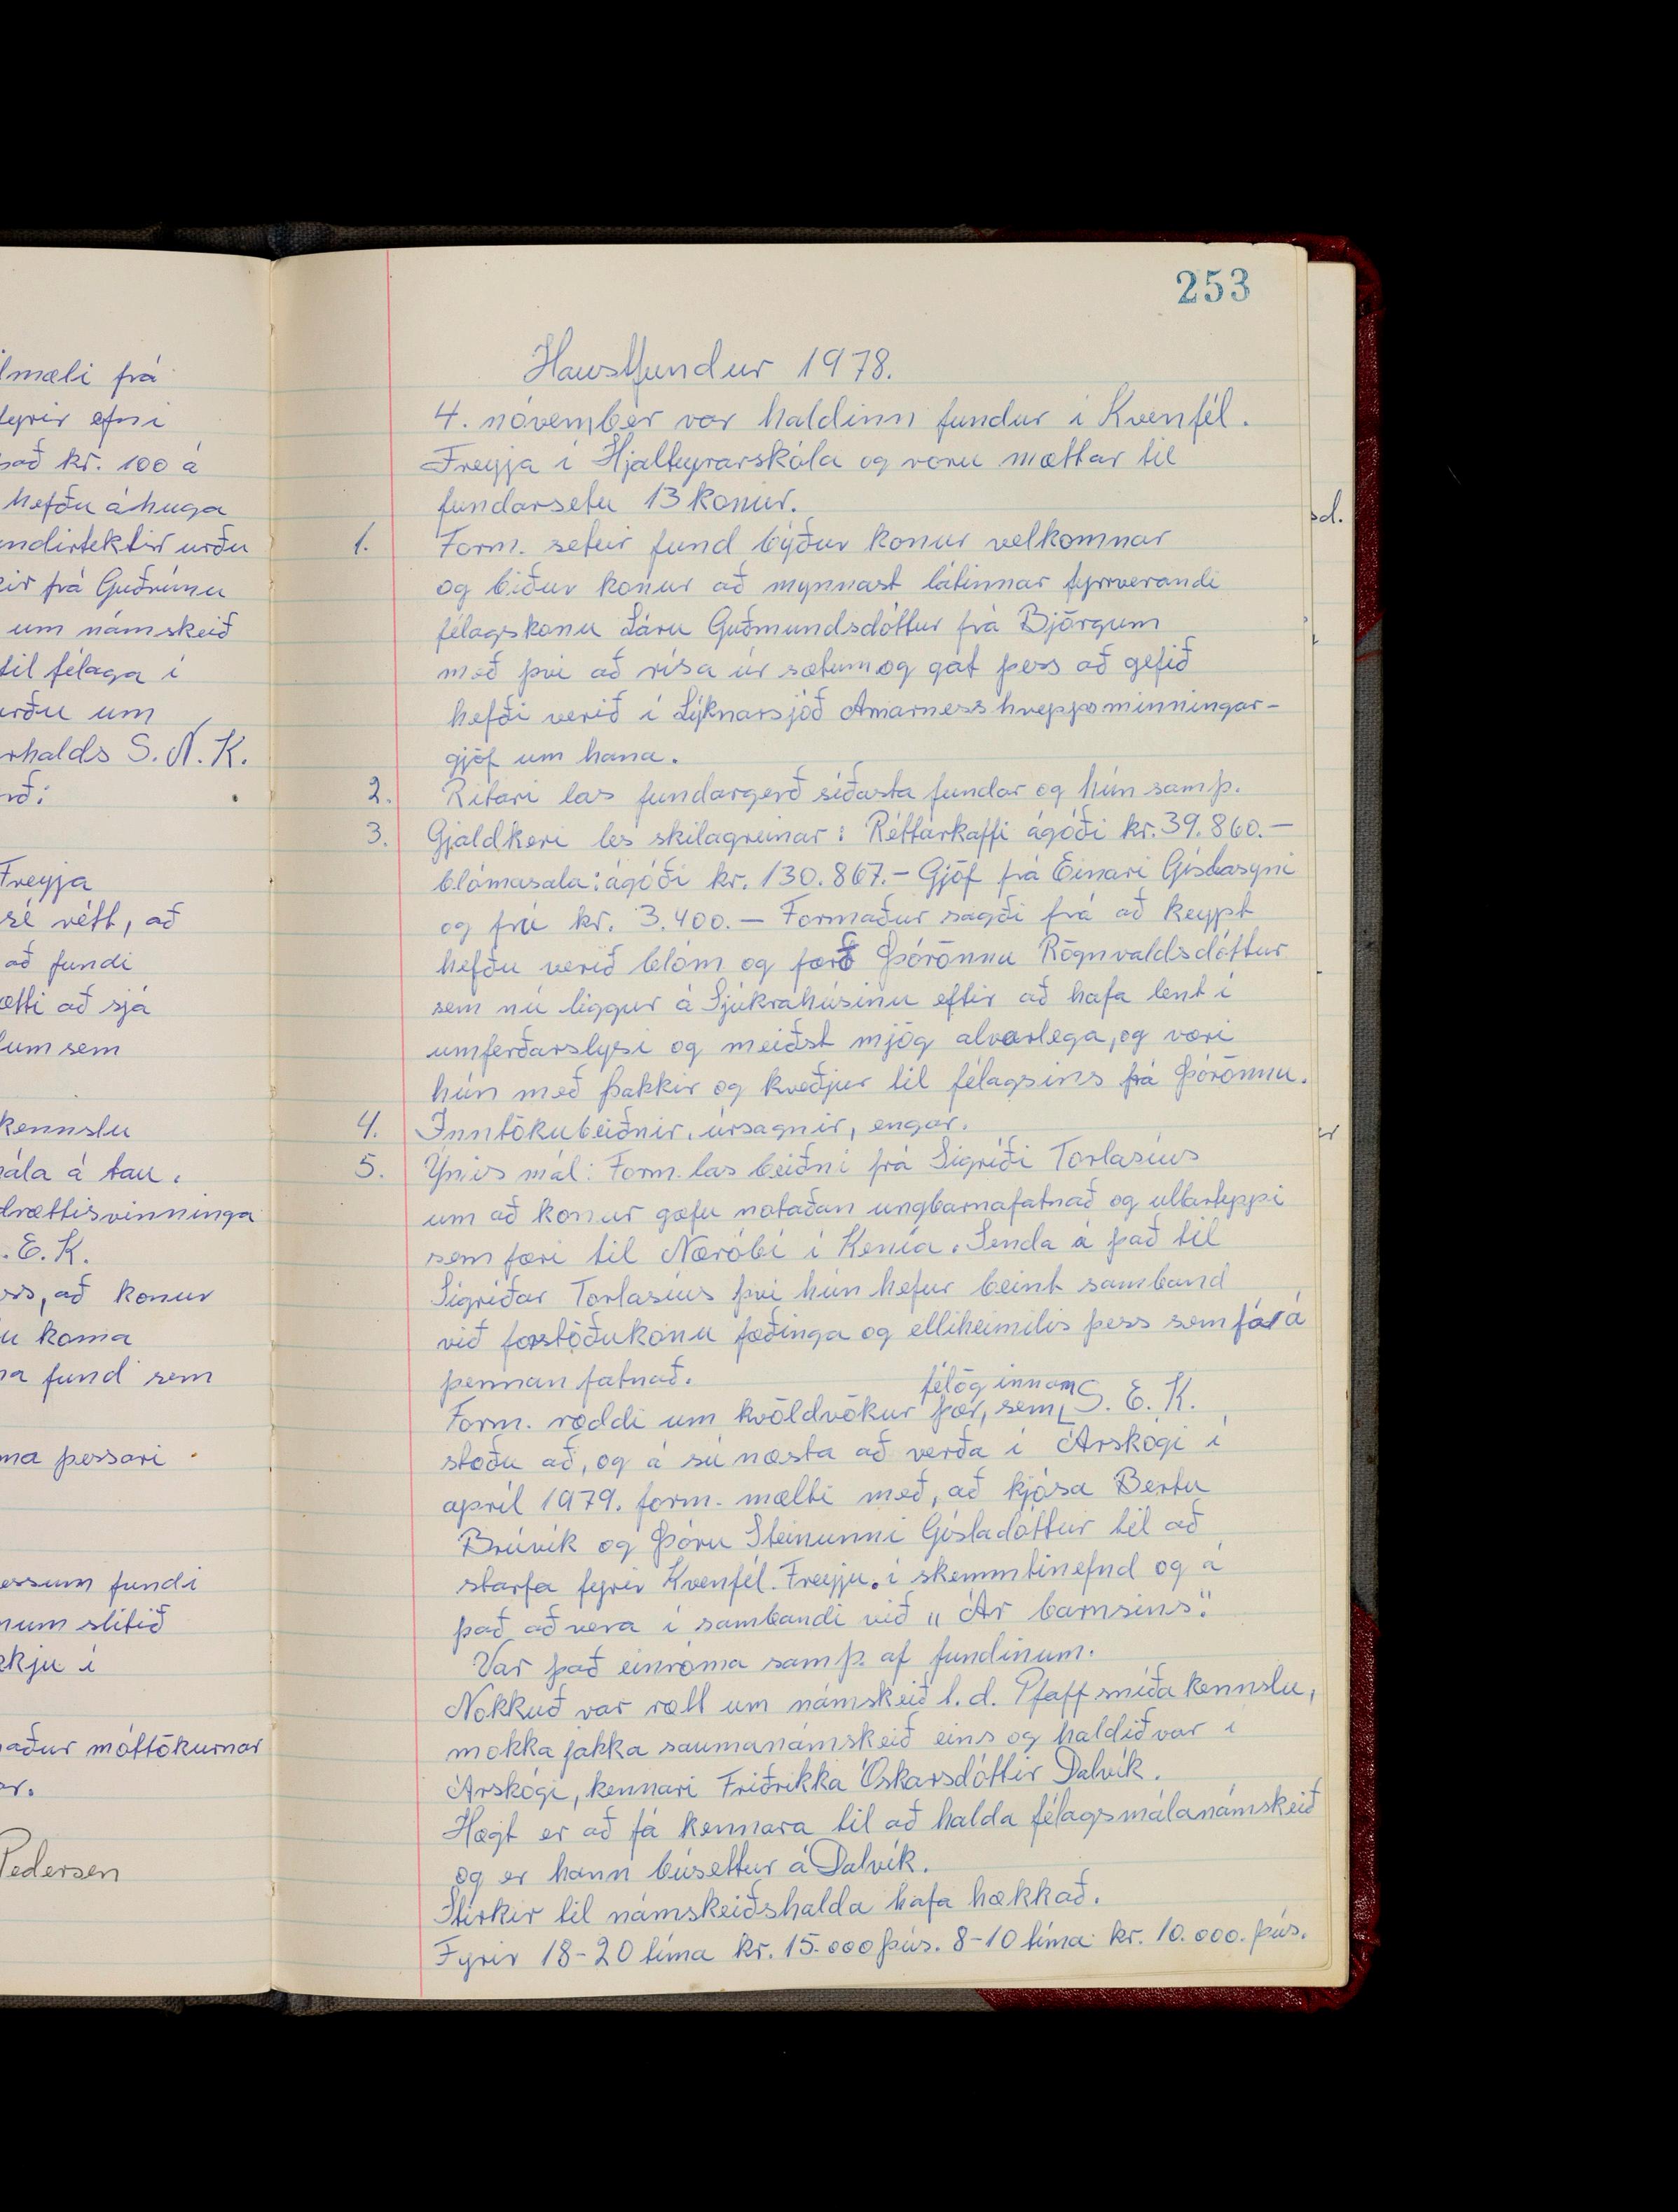 lmæli frá
fyrir efni
það kr. 100 á
hefðu áhuga
undirtektir urðu
frá Guðrúnu
um námskeið
til félaga i
urðu um
rhalds S.N.K.
Freyja
sé rétt, að
að fundi
ætti að sjá
um sem
kennslu
mála á tau.
drættisvinninga
.E.K.
ss, að konur
u koma
na fund sem
ma þessari
essum fundi
num slitið
ekju i
aður móttökurnar
Pedersen
253
Haustfundur 1978.
4. nóvember var haldinn fundur i Kvenfél.
Freyja i Hjalteyrarskóla og voru mættar til
fundarsetu 13 konur.
1. Form. setur fund býður konur velkomnar
og biður konur að mynnast látinnar fyrrverandi
félagskonu Láru Guðmundsdóttur frá Björgum
með þvi að rísa úr sætum og gat þess að gefið
hefði verið i Lýknarsjóð Arnarnesshreppsminningar-
gjöf um hana.
2. Ritari las fundargerð síðasta fundar og hún samþ.
3. Gjaldkeri les skilagreinar: Réttarkaffi ágóði kr. 39.860.—
blómasala: ágóði kr. 130.867.— Gjöf frá Einari Gíslasyni
og frú kr. 3.400.— Formaður sagði frá að keypt
hefðu verið blóm og færð Þórönnu Rögnvaldsdóttur
sem nú liggur á Sjúkrahúsinu eftir að hafa lent i
umferðarslysi og meiðst mjög alvarlega, og væri
hún með þakkir og kveðjur til félagsins frá Þórönnu.
4. Inntökubeiðnir, úrsagnir, engar.
5. Ýmis mál: Form. las beiðni frá Sigríði Torlasíus
um að konur gæfu notaðan ungbarnafatnað og ullarteppi
sem færi til Næróbí i Kenía. Senda á það til
Sigríðar Torlasíus þvi hún hefur beint samband
við forstöðukonu fæðinga og elliheimilis þess sem fá á
þennan fatnað.
félög innan
Form. ræddi um kvöldvökur þær, sem S.E.K.
stæðu að, og á sú næsta að verða i Árskógi i
apríl 1979. form. mælti með, að kjósa Bertu
Brúvík og Þóru Steinunni Gísladóttur til að
starfa fyrir Kvenfél. Freyju. i skemmtinefnd og á
það að vera i sambandi við „Ár barnsins."
Var það einróma samþ. af fundinum.
Nokkuð var rætt um námskeið t.d. Pfaff sníða kennslu,
mokka jakka saumanámskeið eins og haldið var i
Árskógi, kennari Friðrikka Óskarsdóttir Dalvík.
Hægt er að fá kennara til að halda félagsmálanámskeið
og er hann búsettur á Dalvík.
Stirkir til námskeiðshalda hafa hækkað.
Fyrir 18-20 tíma kr. 15.000 þús. 8-10 tíma kr. 10.000. þús.